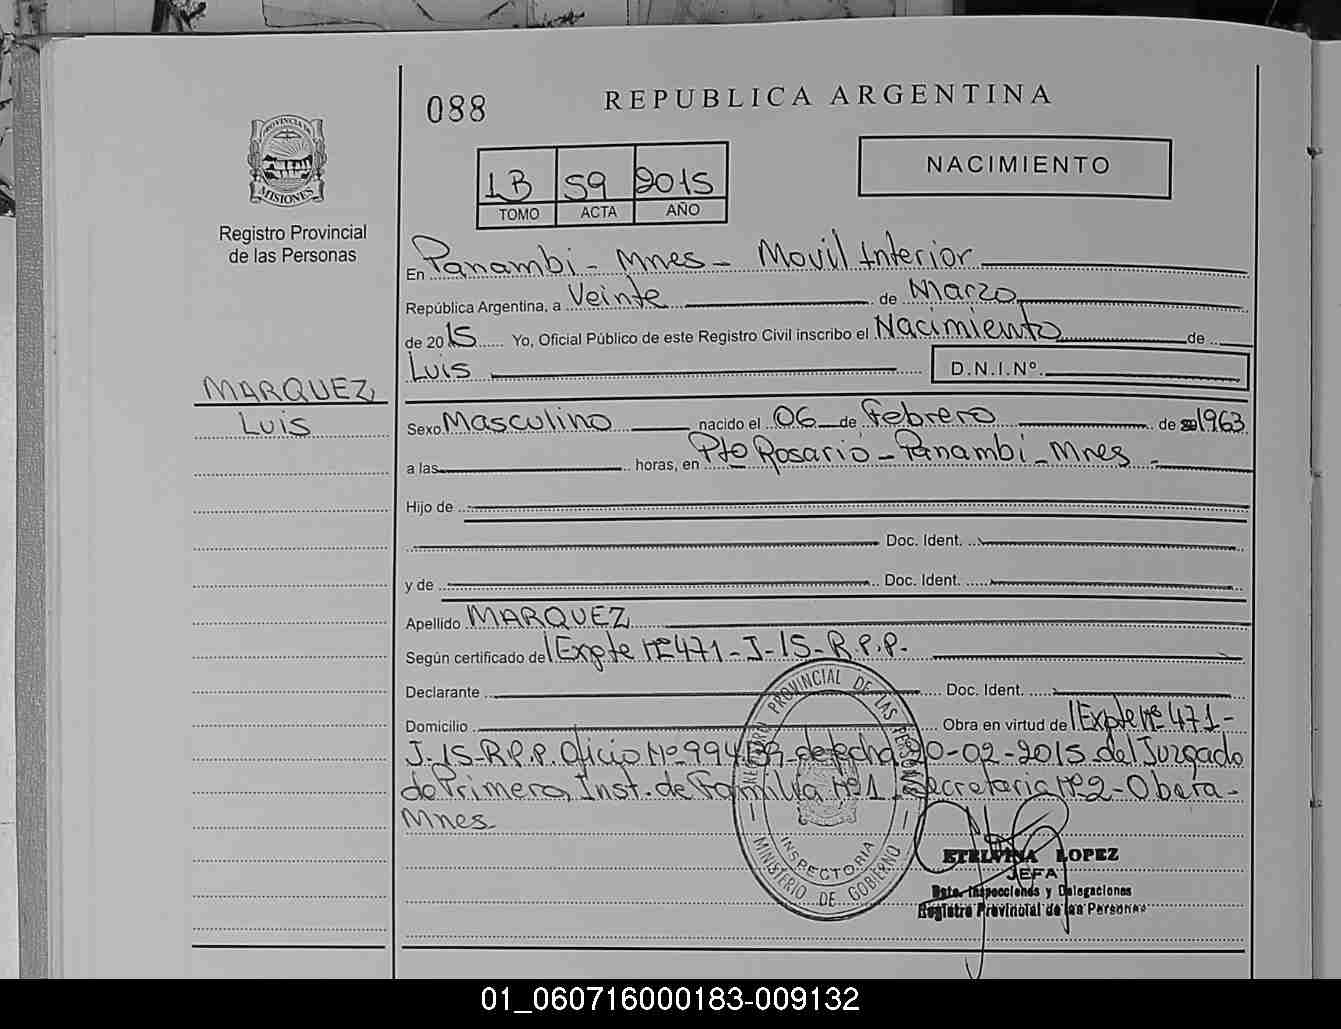 088
REPUBLICA ARGENTINA
PROVINCIA DE
MISIONES
Registro Provincial
de las Personas
1B 59 2015
TOMO ACTA AÑO
NACIMIENTO
En Panambi - Mnes - Movil Interior
República Argentina, a Veinte de Marzo
de 2015 Yo, Oficial Público de este Registro Civil inscribo el Nacimiento de
Luis D.N.I.Nº.
MARQUEZ
Luis
Sexo Masculino nacido el 06 de Febrero de 1963
a las horas, en Pto Rosario - Panambi - Mnes -
Hijo de
Doc. Ident.
y de Doc. Ident.
Apellido MARQUEZ
Según certificado de Expte Nº 471 - J-15-R.P.P.-
Declarante Doc. Ident.
Domicilio Obra en virtud de Expte Nº 471-
J-15-R.P.P. Oficio Nº 994 de fecha 20-02-2015 del Juzgado
de Primera Inst. de Familia Nº 1, Secretaria Nº 2 - Obera -
Mnes
REGISTRO PROVINCIAL DE LAS PERSONAS
INSPECTORIA
MINISTERIO DE GOBIERNO
ETELVINA LOPEZ
JEFA
Dpto. Inspecciones y Delegaciones
Registro Provincial de las Personas
01_060716000183-009132